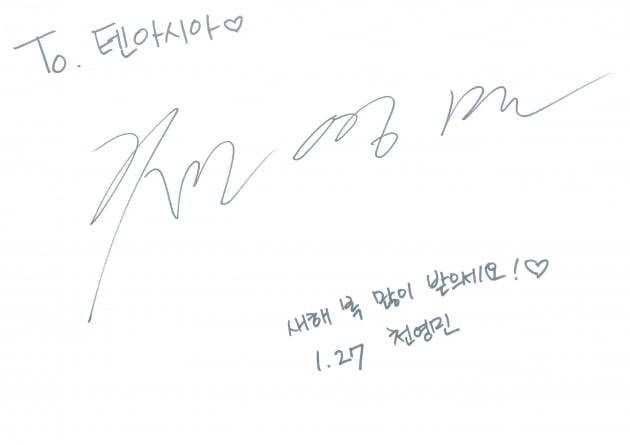 To. 텐아시아♡
천영민
새해 복 많이 받으세요!♡
1.27 천영민